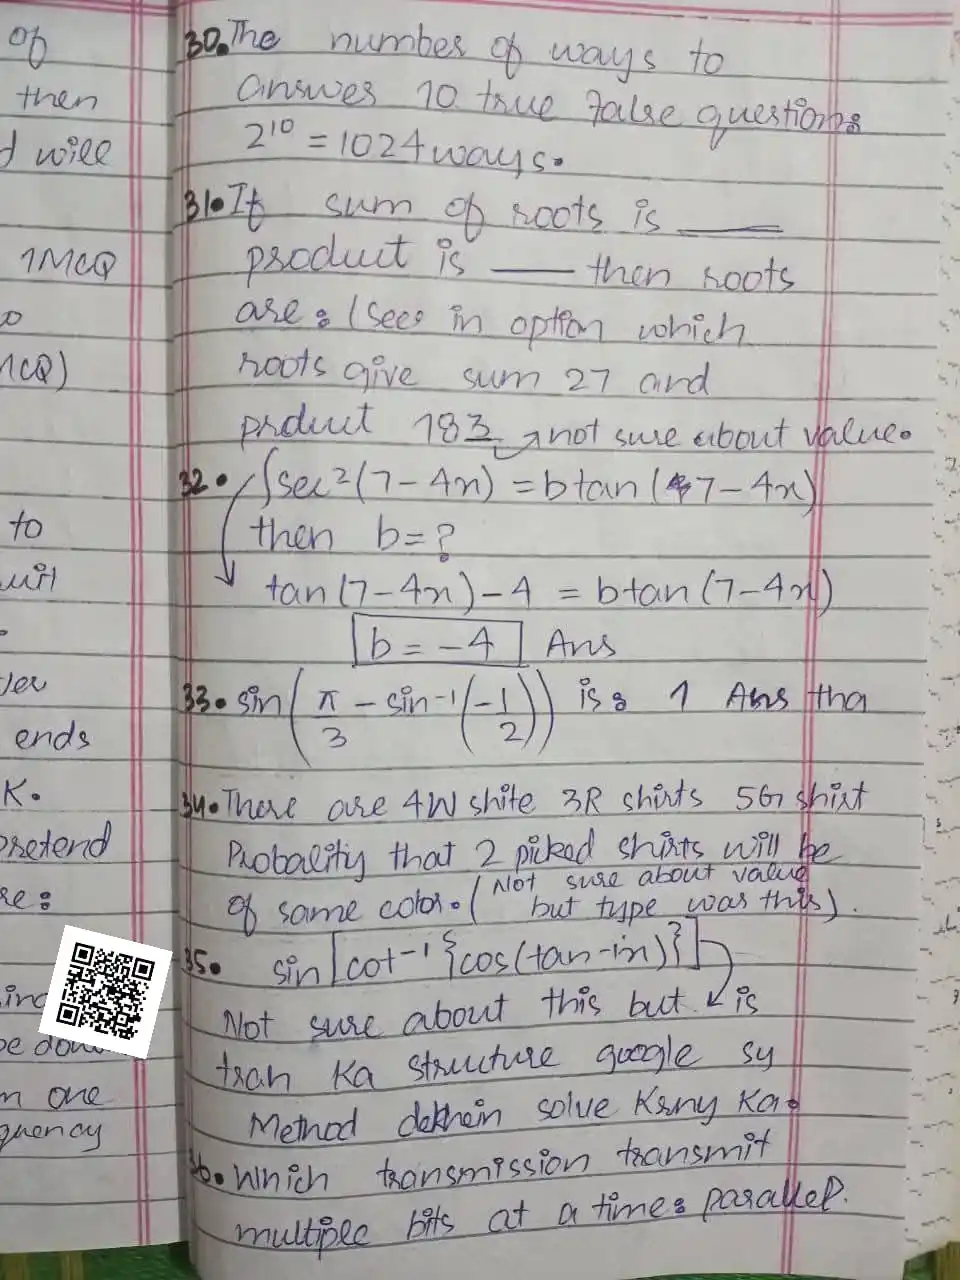 of
then
d will
1MCQ
MCQ)
to
ends
K.
pretend
re:
be done
n one
quency
30. The number of ways to
answer 10 true false questions
2^10 = 1024 ways.
31. If sum of roots is ____
product is ____ then roots
are: (see in option which
roots give sum 27 and
prduct 183 → not sure about value.
32. ∫sec²(7-4x) = b tan(7-4x)
then b=?
tan(7-4x)-4 = b tan(7-4x)
b = -4 Ans
33. sin(π/3 - sin⁻¹(-1/2)) is: 1 Ans tha
34. There are 4W shite 3R shirts 5G shirt
Probality that 2 picked shirts will be
of same color. (Not sure about value
but type was this).
35. sin[cot⁻¹{cos(tan-1x)}]
Not sure about this but is
trah Ka structure google sy
Method dekhein solve Krny Ka.
36. Which transmission transmit
multiple bits at a time: parallel.